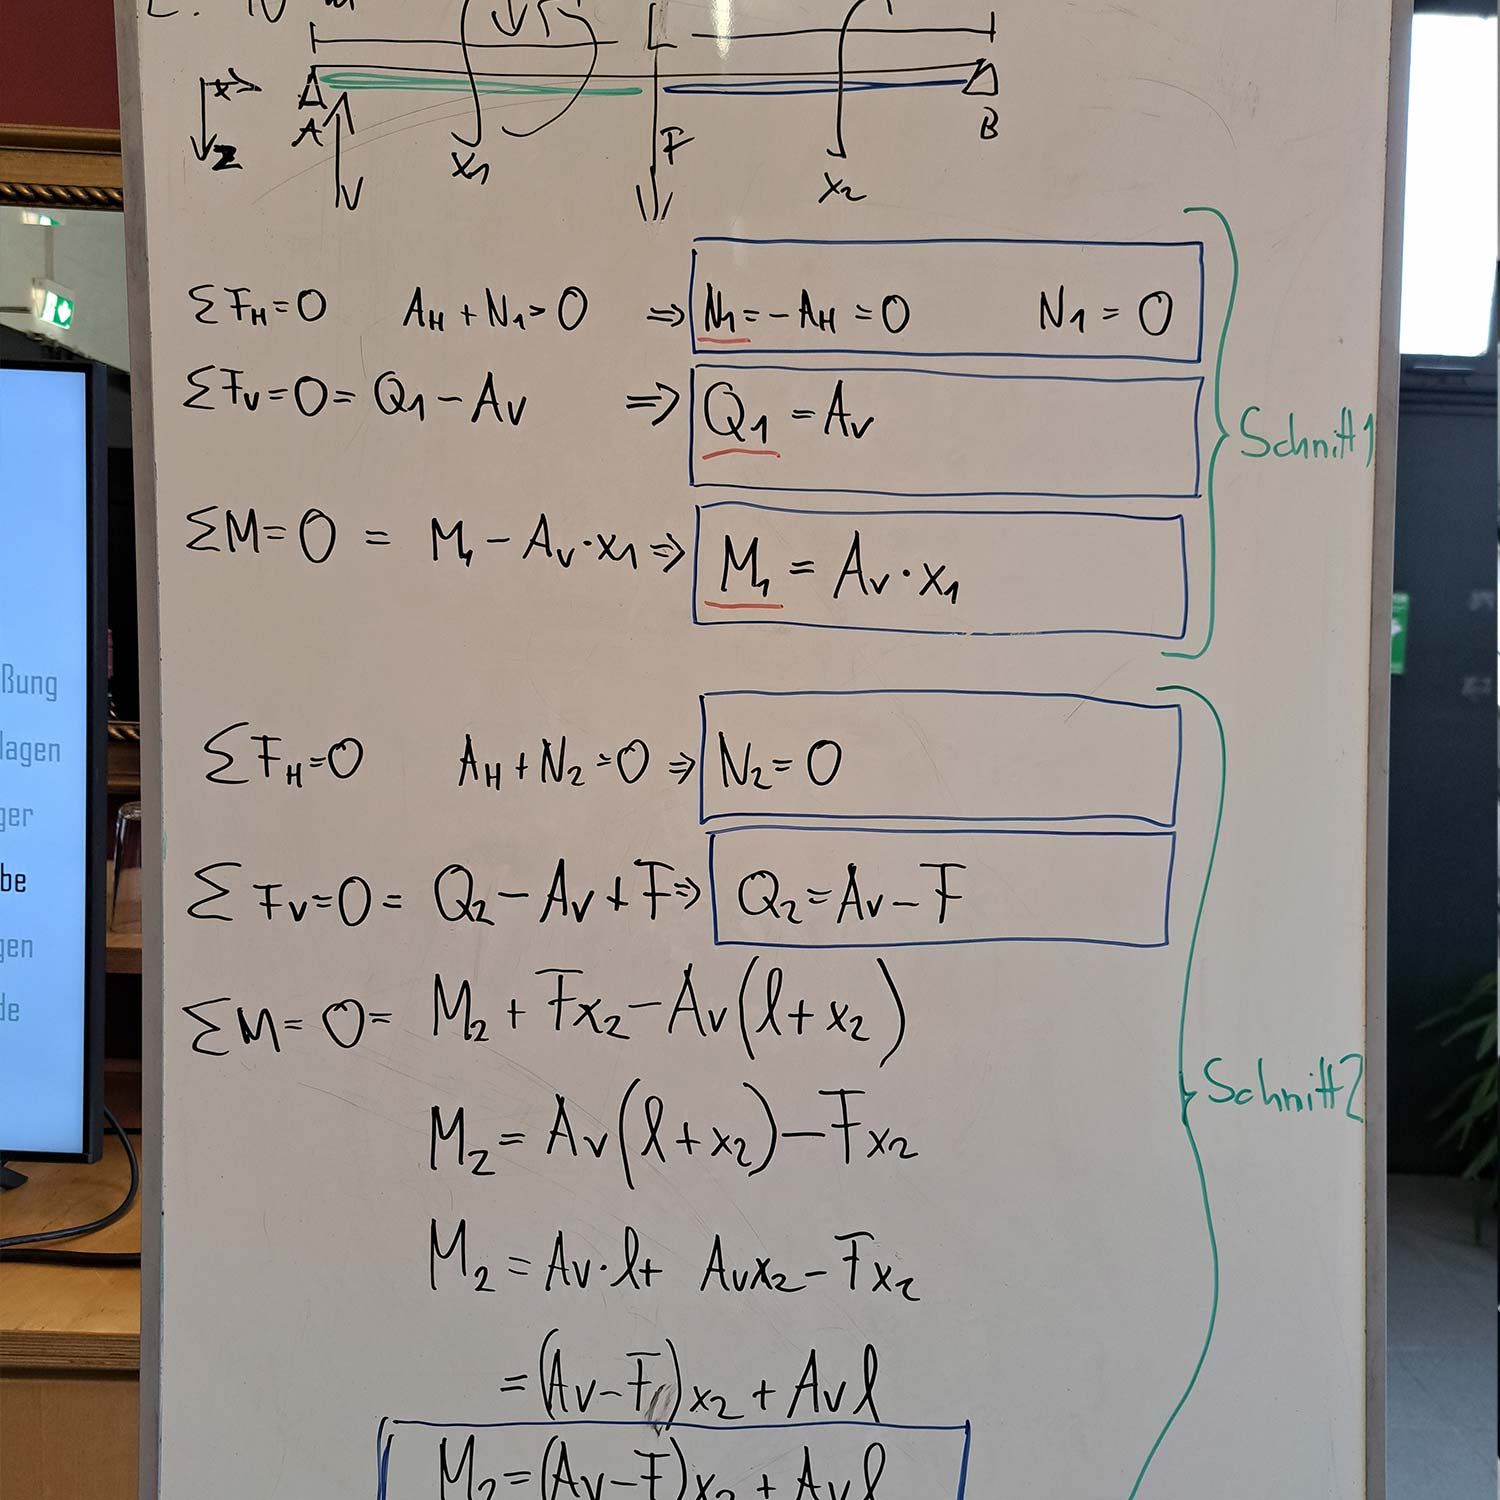 x
z
A
A
V
x₁
F
x₂
B
ΣF_H=0 A_H+N₁=0 ⇒ N₁=-A_H=0 N₁=0
ΣF_V=0=Q₁-A_V ⇒ Q₁=A_V
Schnitt 1
ΣM=0=M₁-A_V·x₁ ⇒ M₁=A_V·x₁
ΣF_H=0 A_H+N₂=0 ⇒ N₂=0
ΣF_V=0=Q₂-A_V+F ⇒ Q₂=A_V-F
ΣM=0=M₂+Fx₂-A_V(l+x₂)
Schnitt 2
M₂=A_V(l+x₂)-Fx₂
M₂=A_V·l+A_Vx₂-Fx₂
=(A_V-F)x₂+A_Vl
M₂=(A_V-F)x₂+A_Vl
ßung
lagen
ger
be
gen
de